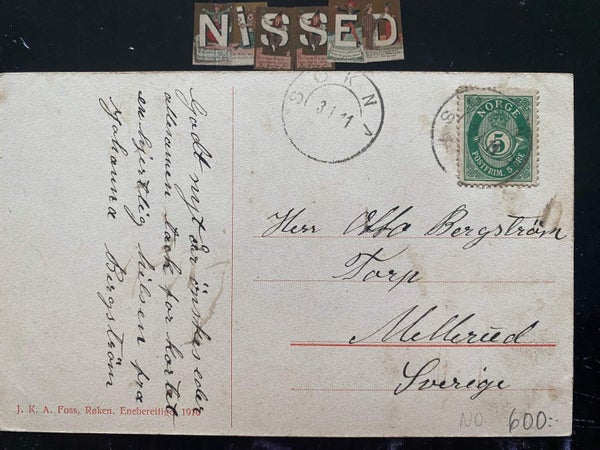 NiSSED
SOKNA
3 1 11
S
NORGE
5
POSTFRIM. 5 ØRE
Godt nyt år önskes eder
allesamen tack for kortet
en hjertlig hilsen fra
Johanna Bergström
Herr Otto Bergström
Torp
Mellerud
Sverige
J. K. A. Foss, Røken. Eneberettiget 1910
NO 600:-